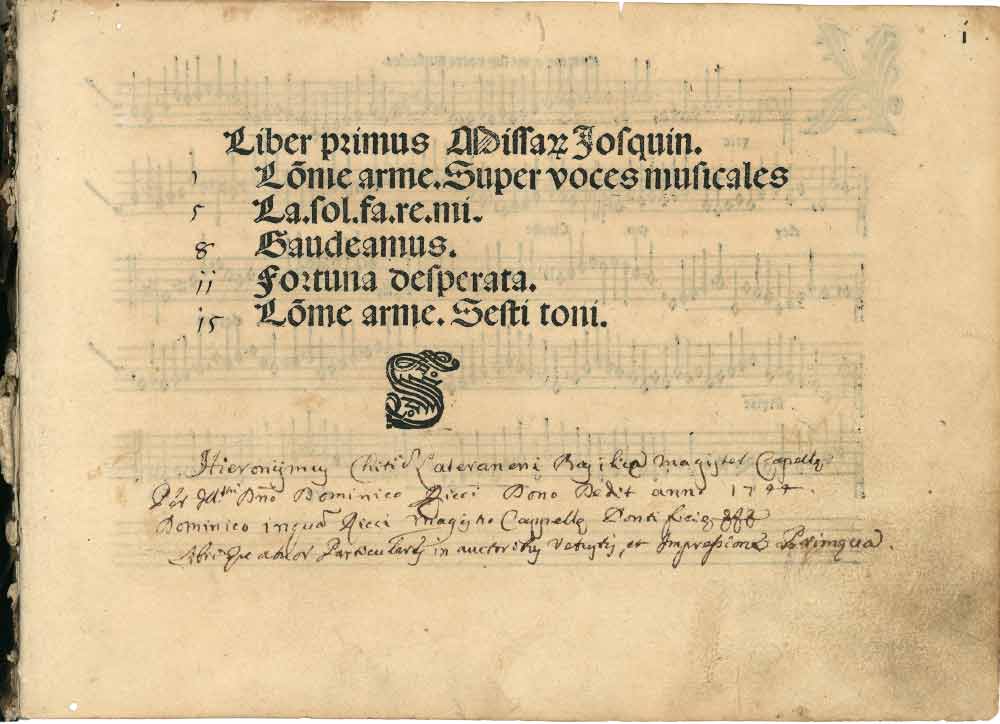 1
Liber primus Missaꝝ Josquin.
1 Lõme arme. Super voces musicales
5 La.sol.fa.re.mi.
8 Gaudeamus.
11 Fortuna desperata.
15 Lõme arme. Sesti toni.
S
Hieronymus Chiti Lateranensi Basilicæ Magister Capellę
Dño Dominico Ricci Dono Dedit anno 1744.
Dominico inquā Ricci Magistro Cappellę Pontificię
in auctoribus Vetustis, et Impressione